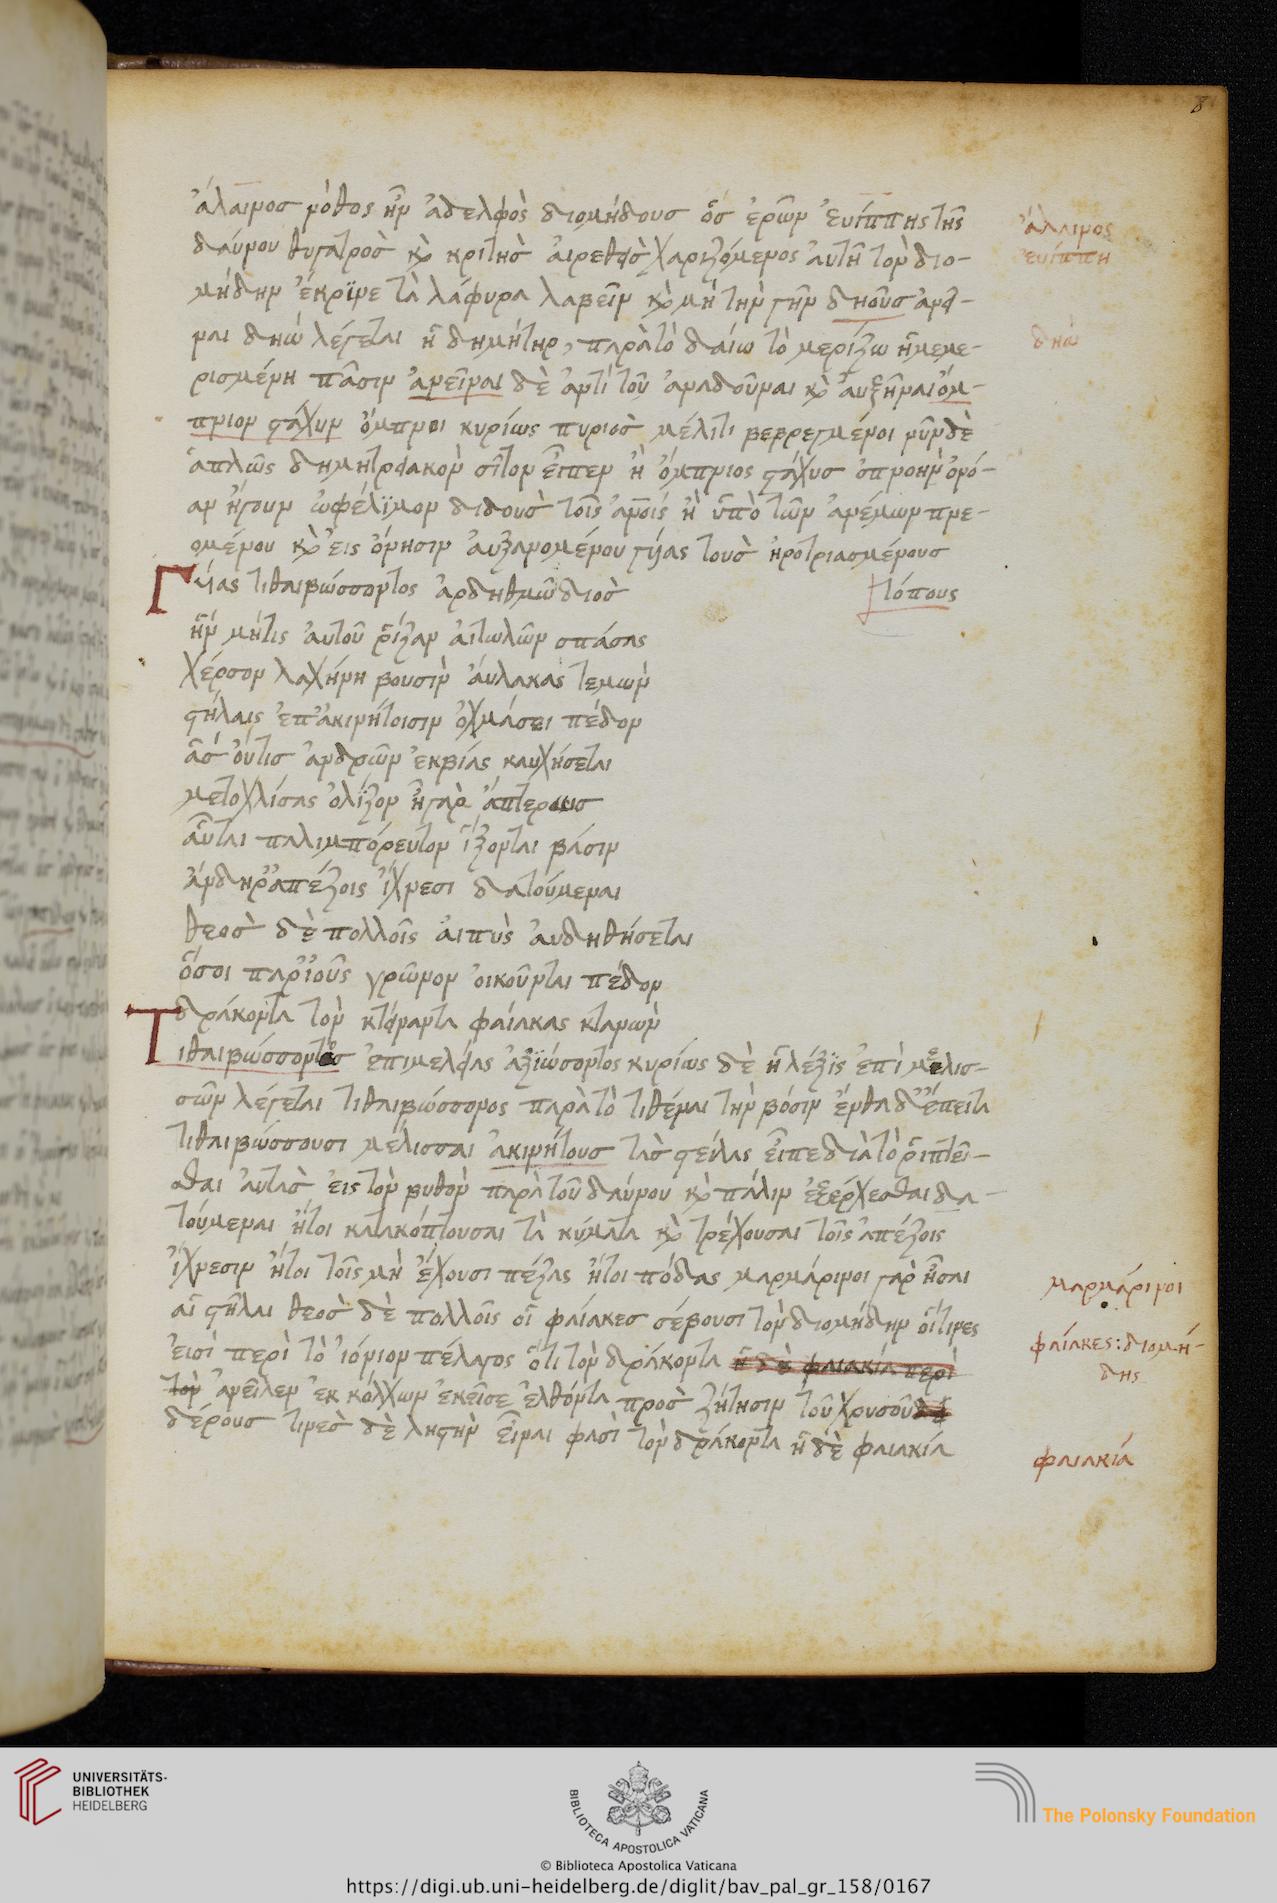 8
ἄλαινος νόθος ἦν ἀδελφὸς διομήδους ὃς ἐρῶν ἐυΐππης τῆς
δαύνου θυγατρὸς κὶ κριτὴς ἁιρεθεὶς χαριζόμενος ἀυτῆ τὸν διο-
μήδην ἔκρϊνε τὰ λάφυρα λαβεῖν κὶ μὴ τὴν γῆν δηοῦς ἀνεῖ-
ναι δηὼ λέγεται ἡ δημήτηρ, παρὰ τὸ δαίω τὸ μερίζω ἡ μεμε-
ρισμένη πᾶσιν ἀνεῖναι δὲ ἀντὶ τοῦ ἀναδοῦναι κὶ ἀυξῆναι ὄμ-
πνιον στάχυν ὄμπναι κυρίως πυρὸς μέλιτι βεβρεγμένοι νῦν δὲ
ἁπλῶς δημητριακὸν σῖτον εἶπεν ἢ ὄμπνιος στάχυς ὀπνοὴν ὀνό-
αν ἤγουν ὠφέλϊμον διδοὺς τοῖς ἀνοῖς ἢ ὑπὸ τῶν ἀνέμων πνε-
ομένου κὶ εἰς ὄνησιν ἀυξανομένου γύας τοὺς ἠροτριασμένους
τόπους
Γύας τιθαιβώσσοντος ἀρδηθμῶ διὸς
ἢν μήτις ἀυτοῦ ῥίζαν ἀιτωλῶν σπάσας
χέρσον λαχήνη βουσὶν ἄυλακας τεμών
στήλαις ἐπ ἀκινήτοισιν ὀχμάσει πέδον
ἃς ὄυτις ἀνδρῶν ἐκβίας καυχήσεται
μετοχλίσας ὀλίζον ἦ γαρ ἀπτέρως
ἀῦται παλιμπόρευτον ἵξονται βάσιν
ἄνδηρ ἀπέζοις ἴχνεσι δατούμεναι
θεὸς δὲ πολλοῖς ἀιπὺς ἀυδηθήσεται
ὅσοι παρ ἰοῦς γρῶνον ὀικοῦνται πέδον
δράκοντα τὸν κτείναντα φαίακας κτανών
Τιθαιβώσσοντος ἐπιμελείας ἀξϊώσοντος κυρίως δὲ ἡ λέξϊς ἐπὶ μελισ-
σῶν λέγεται τιθαιβώσσοντος παρὰ τὸ τιθέναι τὴν βόσιν ἔνθα δ ἔπειτα
τιθαιβώσσουσι μέλισσαι ἀκινήτους τὰς στείλας εἶπε διὰ τὸ ῥιπτεῖ-
σθαι ἀυτὰς εἰς τὸν βυθὸν παρὰ τοῦ δαύνου κὶ πάλιν ἐξέρχεσθαι δα-
τούμεναι ἤτοι κατακόπτουσαι τὰ κύματα κὶ τρέχουσαι τοῖς ἀπέζοις
ἴχνεσιν ἤτοι τοῖς μὴ ἔχουσι πέζας ἤτοι πόδας μαρμάρινοι γαρ ἦσαι
αἱ στῆλαι θεὸς δὲ πολλοῖς οἱ φαίακες σέβουσι τὸν διομήδην οἵτινες
ἐισὶ περὶ τὸ ἰόνιον πέλαγος ὅτι τὸν δράκοντα ἡ δὲ φαιακία περὶ
τὸν ἀνεῖλεν ἐκ κόλχων ἐκεῖσε ἐλθόντα προς ζήτησιν τοῦ χρυσοῦ
δέρους τινὲς δὲ ληστὴν εἶναι φασὶ τὸν δράκοντα ἡ δὲ φαιακία
ἄλαινος
ἐυίππη
δηώ
μαρμάρινοι
φαίακες: διομή-
δης
φαιακία
UNIVERSITÄTS-
BIBLIOTHEK
HEIDELBERG
BIBLIOTECA APOSTOLICA VATICANA
The Polonsky Foundation
© Biblioteca Apostolica Vaticana
https://digi.ub.uni-heidelberg.de/diglit/bav_pal_gr_158/0167